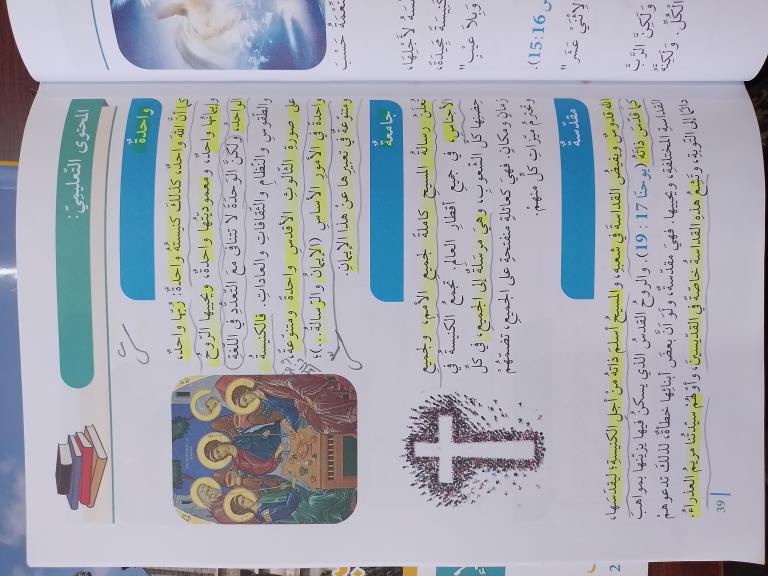 المحتوى التعليميّ:
واحدةٌ
كما أنّ اللهَ واحدٌ، كذلكَ كنيستُهُ واحدةٌ. ربُّها واحدٌ،
وإيمانُها واحدٌ، ومعموديّتُها واحدةٌ، ويحييها الرّوحُ
الواحدُ، ولكنّ الوحدةَ لا تتنافى مع التّعدّدِ في اللّغةِ
والطّقوسِ والنّظامِ والثّقافاتِ والعاداتِ. فالكنيسةُ
على صورةِ الثّالوثِ الأقدسِ واحدةٌ ومتنوّعةٌ،
واحدةٌ في الأمورِ الأساسِ (الإيمانُ والرّسالةُ...)؛
ومتنوّعةٌ في تعبيرِها عن هذا الإيمانِ.
جامعةٌ
تُعلنُ رسالةَ المسيحِ كاملةً لجميعِ الأممِ، ولجميعِ
الأجناسِ، في جميعِ أقطارِ العالمِ. تجمعُ الكنيسةُ في
حضنِها كلَّ الشّعوبِ، وهيَ مرسلةٌ إلى الجميعِ، في كلِّ
زمانٍ ومكانٍ. فهيَ كعائلةٍ منفتحةٍ على الجميعِ، تضمّهُمْ
وتحترمُ ميزاتِ كلٍّ منهُمْ.
مقدّسةٌ
اللهُ قدّوسٌ ويفيضُ القداسةَ في شعبِهِ، والمسيحُ أسلمَ ذاتَهُ من أجلِ الكنيسةِ؛ ليقدّسَها،
كما قدّسَ ذاتَهُ (يوحنّا 17 : 19). والرّوحُ القدسُ الّذي يسكنُ فيها يزيّنُها بمواهبَ
القداسةِ المختلفةِ، ويحييها. فهيَ مقدّسةٌ، ولو أنّ بعضَ أبنائِها خطأةٌ، لذلكَ تدعوهمْ
دائمًا إلى التّوبةِ، وتشعُّ هذهِ القداسةُ خاصّةً في القدّيسينَ، وأوّلُهُمْ سيّدتُنا مريمُ العذراءُ.
39